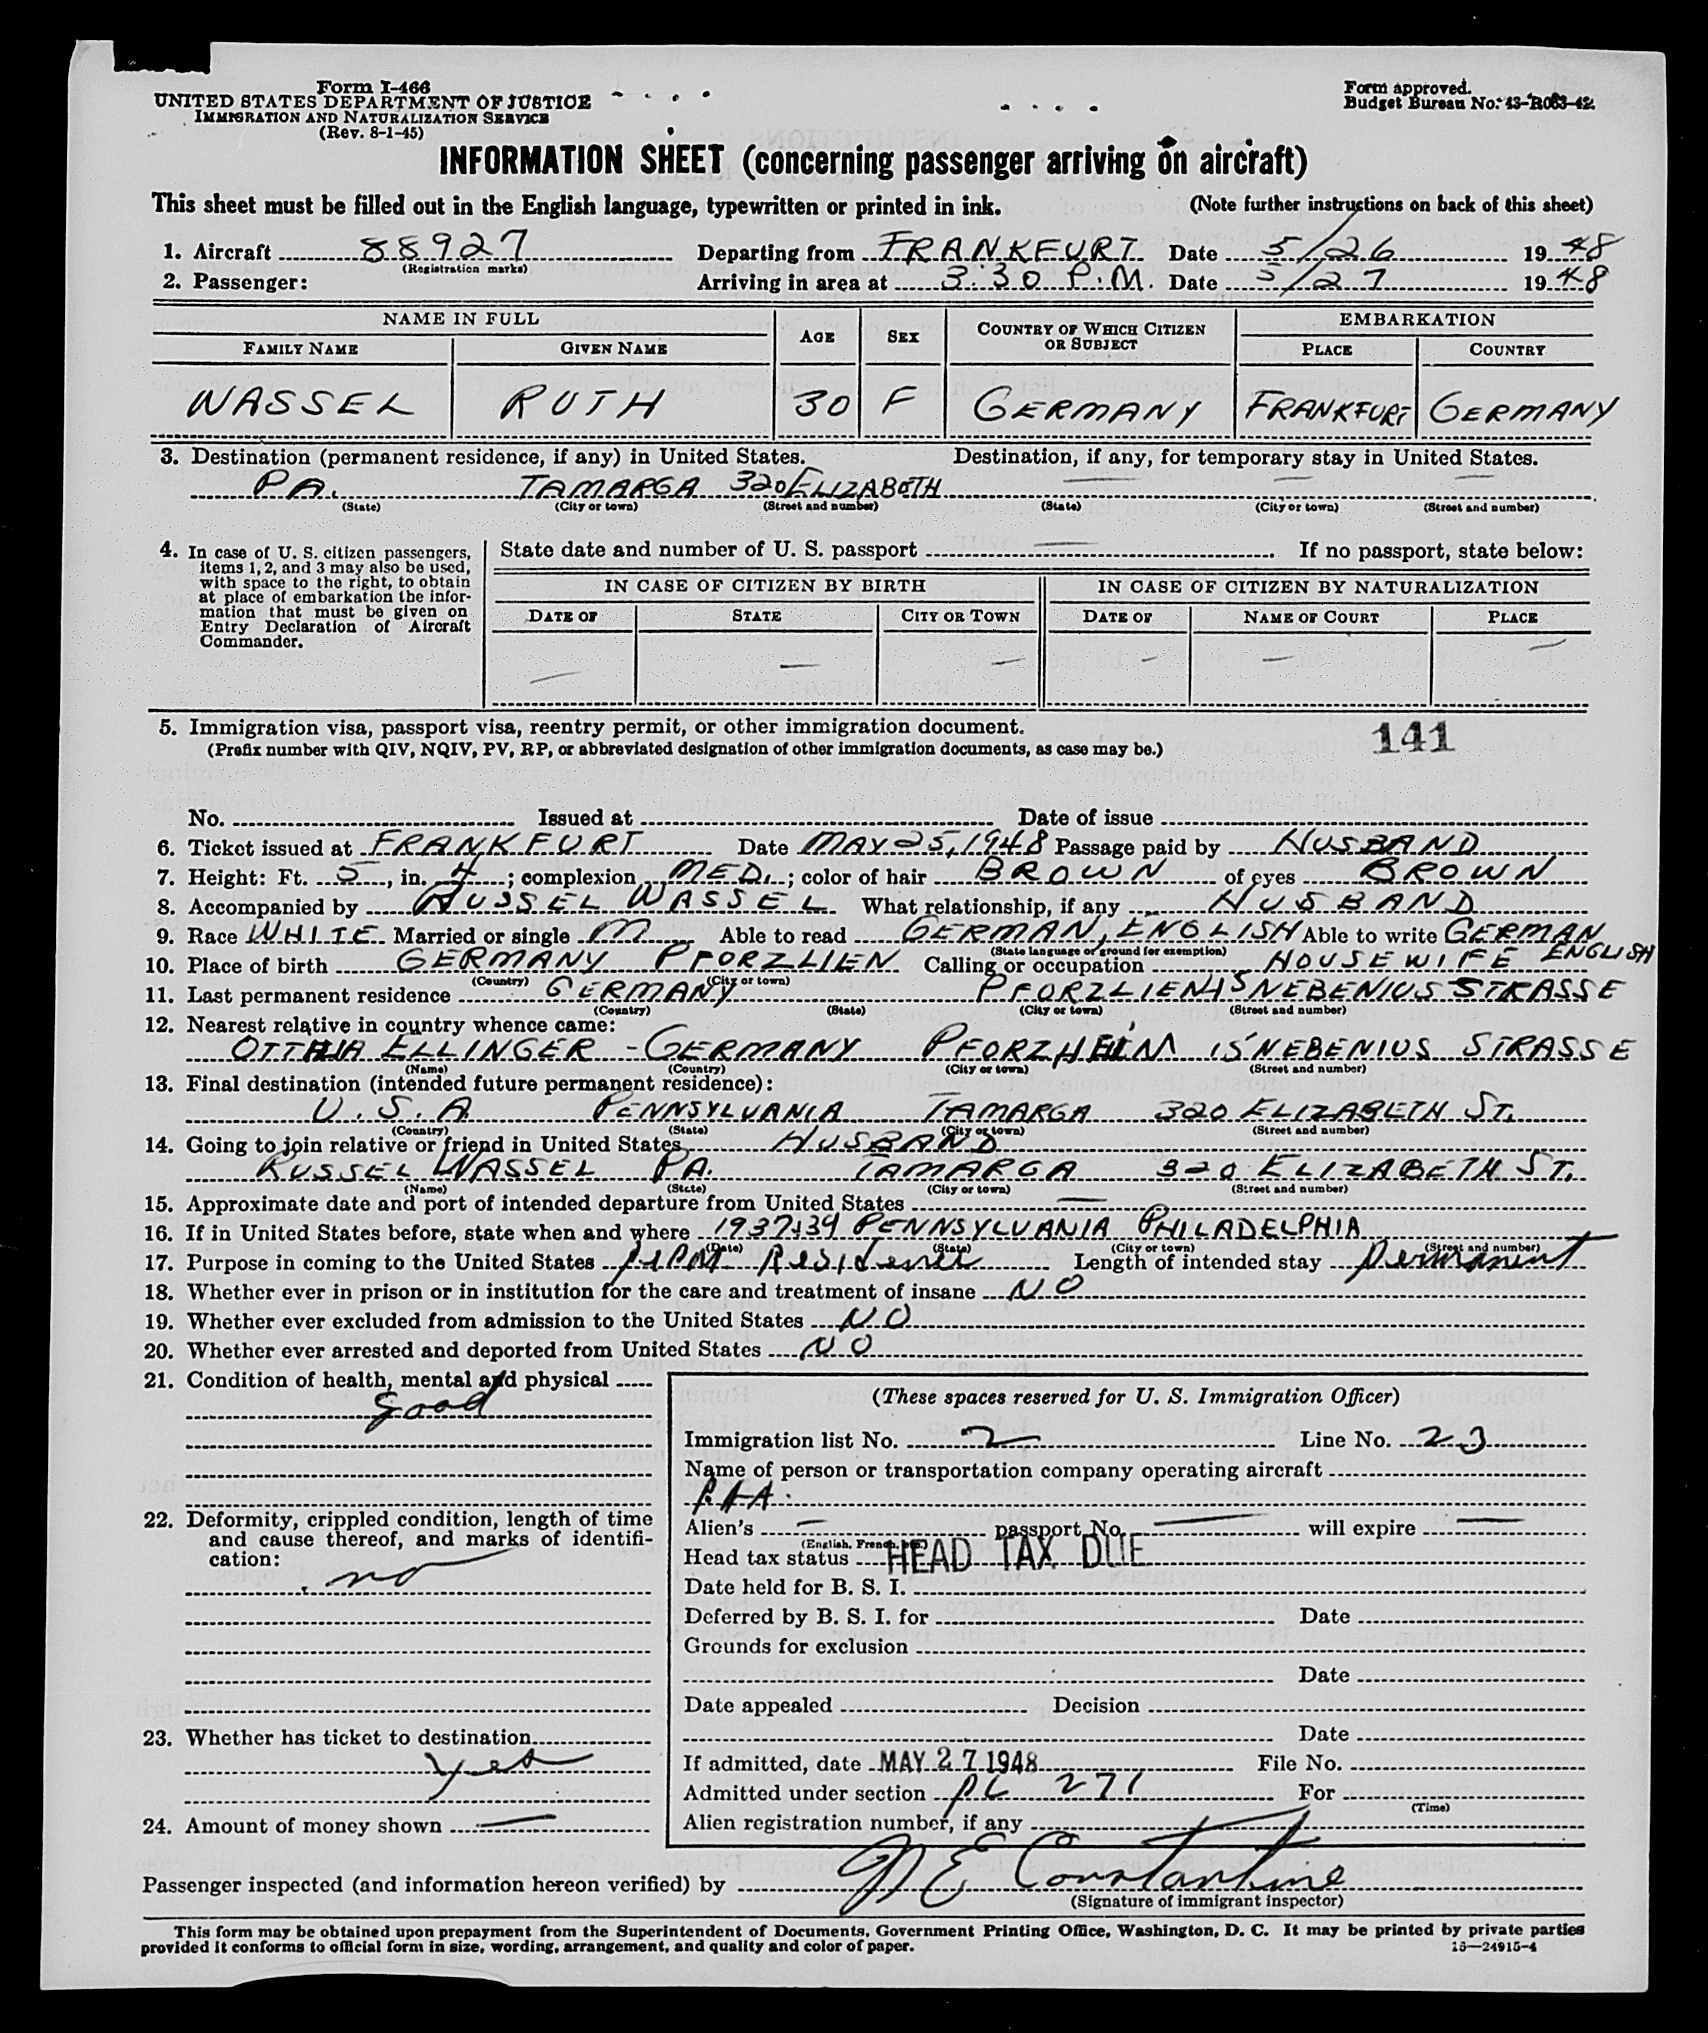 Form I-466
UNITED STATES DEPARTMENT OF JUSTICE
IMMIGRATION AND NATURALIZATION SERVICE
(Rev. 8-1-45)
Form approved.
Budget Bureau No. 43-R063-42.
INFORMATION SHEET (concerning passenger arriving on aircraft)
This sheet must be filled out in the English language, typewritten or printed in ink. (Note further instructions on back of this sheet)
1. Aircraft 88927 Departing from FRANKFURT Date 5/26 1948
(Registration marks)
2. Passenger: Arriving in area at 3:30 P.M. Date 5/27 1948
NAME IN FULL AGE SEX COUNTRY OF WHICH CITIZEN OR SUBJECT EMBARKATION
FAMILY NAME GIVEN NAME PLACE COUNTRY
WASSEL RUTH 30 F GERMANY FRANKFURT GERMANY
3. Destination (permanent residence, if any) in United States. Destination, if any, for temporary stay in United States.
PA. TAMARGA 320 ELIZABETH — — —
(State) (City or town) (Street and number) (State) (City or town) (Street and number)
4. In case of U. S. citizen passengers, items 1, 2, and 3 may also be used, with space to the right, to obtain at place of embarkation the information that must be given on Entry Declaration of Aircraft Commander.
State date and number of U. S. passport — If no passport, state below:
IN CASE OF CITIZEN BY BIRTH IN CASE OF CITIZEN BY NATURALIZATION
DATE OF STATE CITY OR TOWN DATE OF NAME OF COURT PLACE
— — — — — —
5. Immigration visa, passport visa, reentry permit, or other immigration document.
(Prefix number with QIV, NQIV, PV, RP, or abbreviated designation of other immigration documents, as case may be.)
141
No. Issued at Date of issue
6. Ticket issued at FRANKFURT Date MAY 25, 1948 Passage paid by HUSBAND
7. Height: Ft. 5, in. 4; complexion MED.; color of hair BROWN of eyes BROWN
8. Accompanied by RUSSEL WASSEL What relationship, if any HUSBAND
9. Race WHITE Married or single M Able to read GERMAN, ENGLISH Able to write GERMAN ENGLISH
(State language or ground for exemption)
10. Place of birth GERMANY PFORZLIEN Calling or occupation HOUSEWIFE
(Country) (City or town)
11. Last permanent residence GERMANY PFORZLIEN 15 NEBENIUS STRASSE
(Country) (State) (City or town) (Street and number)
12. Nearest relative in country whence came:
OTTHIA ELLINGER - GERMANY PFORZHEIM 15 NEBENIUS STRASSE
(Name) (Country) (City or town) (Street and number)
13. Final destination (intended future permanent residence):
U.S.A. PENNSYLVANIA TAMARGA 320 ELIZABETH ST.
(Country) (State) (City or town) (Street and number)
14. Going to join relative or friend in United States HUSBAND
RUSSEL WASSEL PA. TAMARGA 320 ELIZABETH ST.
(Name) (State) (City or town) (Street and number)
15. Approximate date and port of intended departure from United States —
16. If in United States before, state when and where 1937-39 PENNSYLVANIA PHILADELPHIA
(Date) (State) (City or town) (Street and number)
17. Purpose in coming to the United States perm Residence Length of intended stay permanent
18. Whether ever in prison or in institution for the care and treatment of insane NO
19. Whether ever excluded from admission to the United States NO
20. Whether ever arrested and deported from United States NO
21. Condition of health, mental and physical
good
22. Deformity, crippled condition, length of time and cause thereof, and marks of identification:
no
23. Whether has ticket to destination
yes
24. Amount of money shown —
(These spaces reserved for U. S. Immigration Officer)
Immigration list No. 2 Line No. 23
Name of person or transportation company operating aircraft
Alien's — passport No. — will expire —
(English, French, etc.)
Head tax status HEAD TAX DUE
Date held for B. S. I.
Deferred by B. S. I. for Date
Grounds for exclusion
Date
Date appealed Decision
Date
If admitted, date MAY 27 1948 File No.
Admitted under section PL 271 For
(Time)
Alien registration number, if any
Passenger inspected (and information hereon verified) by N E Constantine
(Signature of immigrant inspector)
This form may be obtained upon prepayment from the Superintendent of Documents, Government Printing Office, Washington, D. C. It may be printed by private parties
provided it conforms to official form in size, wording, arrangement, and quality and color of paper.
16—24915-4